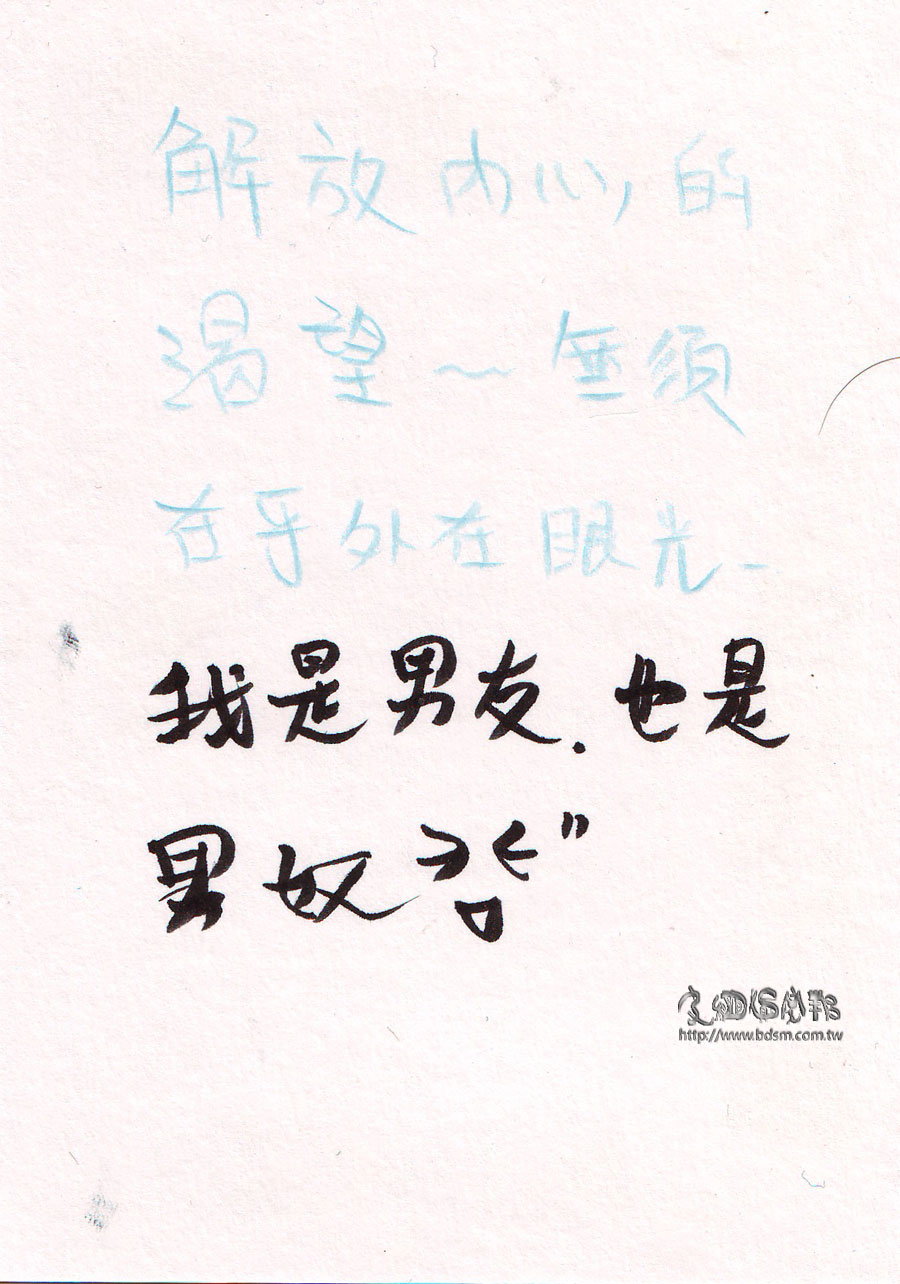 解放內心的
渴望～無須
在乎外在眼光-
我是男友.也是
男奴><"
http://www.bdsm.com.tw